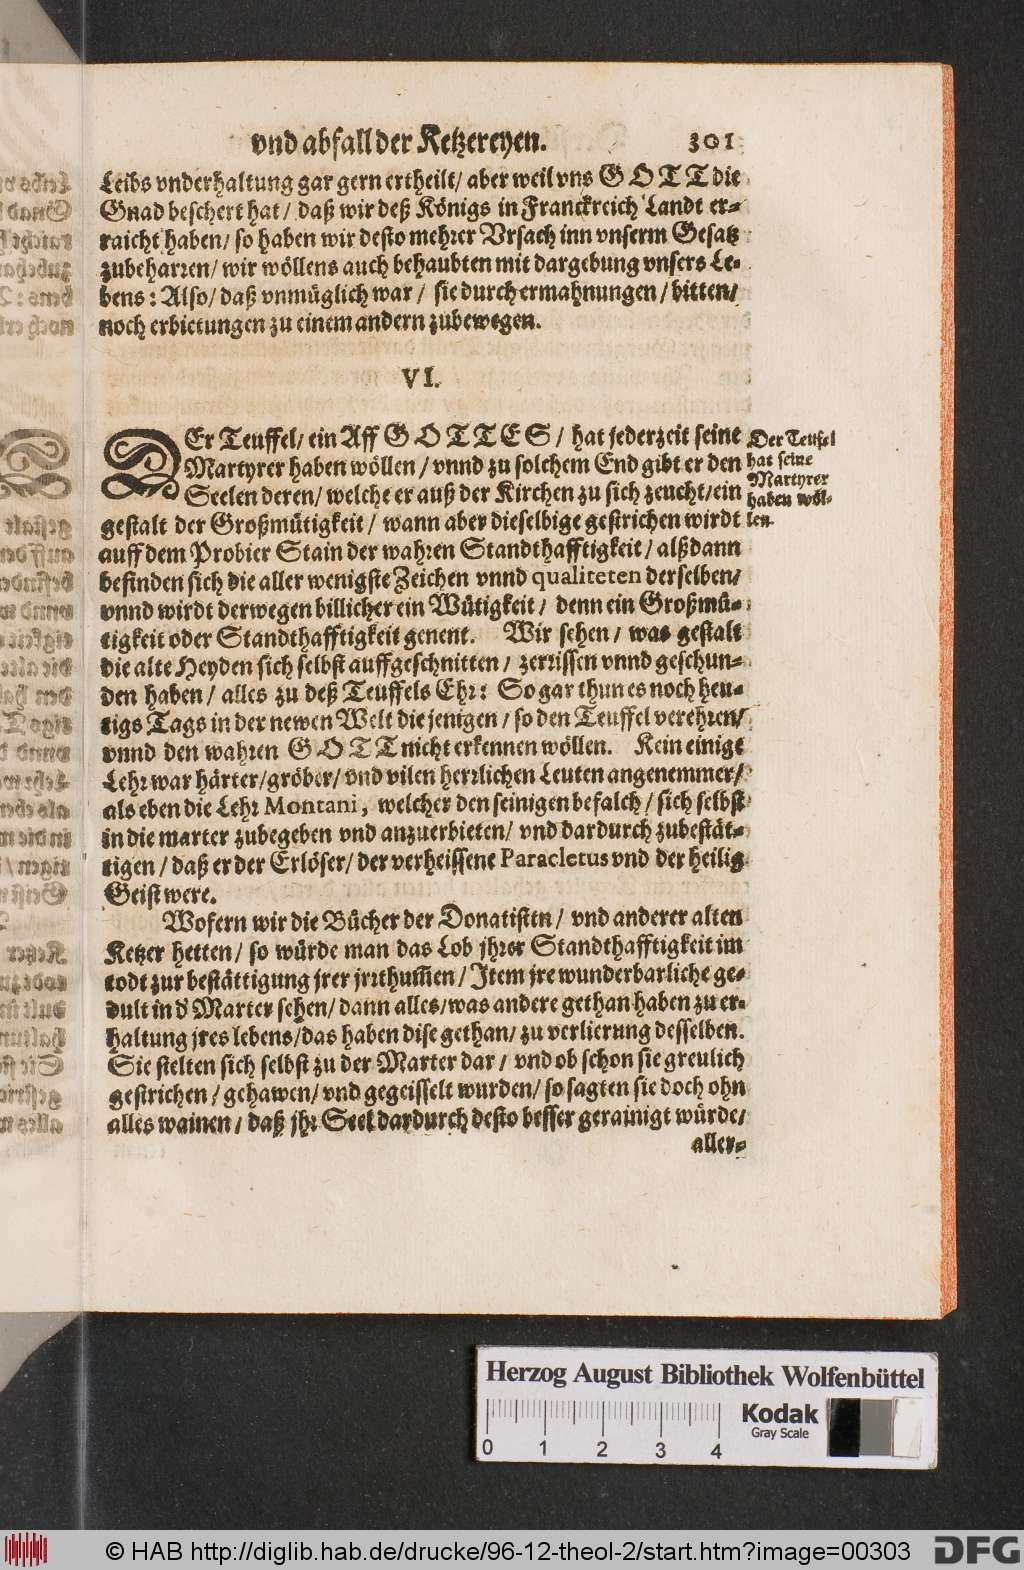 vnd abfall der Ketzereyen. 301
Leibs vnderhaltung gar gern ertheilt/ aber weil vns GOTT die
Gnad beschert hat/ daß wir deß Königs in Franckreich Landt er-
raicht haben/ so haben wir desto mehrer Vrsach inn vnserm Gesatz
zubeharren/ wir wöllens auch behaubten mit dargebung vnsers Le-
bens: Also/ daß vnmüglich war/ sie durch ermahnungen/ bitten/
noch erbietungen zu einem andern zubewegen.
VI.
DEr Teuffel/ ein Aff GOTTES/ hat jederzeit seine
Martyrer haben wöllen/ vnnd zu solchem End gibt er den
Seelen deren/ welche er auß der Kirchen zu sich zeucht/ ein
gestalt der Großmütigkeit/ wann aber dieselbige gestrichen wirdt
auff dem Probier Stain der wahren Standthafftigkeit/ alßdann
befinden sich die aller wenigste Zeichen vnnd qualiteten derselben/
vnnd wirdt derwegen billicher ein Wütigkeit/ denn ein Großmü-
tigkeit oder Standthafftigkeit genent. Wir sehen/ was gestalt
die alte Heyden sich selbst auffgeschnitten/ zerrissen vnnd geschun-
den haben/ alles zu deß Teuffels Ehr: So gar thun es noch heu-
tigs Tags in der newen Welt die jenigen/ so den Teuffel verehren/
vnnd den wahren GOTT nicht erkennen wöllen. Kein einige
Lehr war härter/ gröber/ vnd vilen herrlichen Leuten angenemmer/
als eben die Lehr Montani, welcher den seinigen befalch/ sich selbst
in die marter zubegeben vnd anzuerbieten/ vnd dardurch zubestät-
tigen/ daß er der Erlöser/ der verheissene Paracletus vnd der heilig
Geist were.
Wofern wir die Bücher der Donatistn/ vnd anderer alten
Ketzer hetten/ so würde man das Lob jhrer Standthafftigkeit im
todt zur bestättigung jrer jrrthum̄en/ Item jre wunderbarliche ge-
dult in d' Marter sehen/ dann alles/ was andere gethan haben zu er-
haltung jres lebens/ das haben dise gethan/ zu verlierung desselben.
Sie stelten sich selbst zu der Marter dar/ vnd ob schon sie greulich
gestrichen/ gehawen/ vnd gegeisselt wurden/ so sagten sie doch ohn
alles wainen/ daß jhr Seel dardurch desto besser gerainigt würde/
aller-
Der Teuffel
hat seine
Martyrer
haben wöl-
len.
Herzog August Bibliothek Wolfenbüttel
0 1 2 3 4
Kodak
Gray Scale
© HAB http://diglib.hab.de/drucke/96-12-theol-2/start.htm?image=00303
DFG